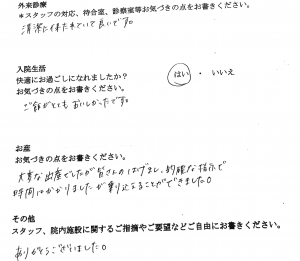 外来診療
*スタッフの対応、待合室、診察室等お気づきの点をお書きください。
清潔に保たれていて良いです。
入院生活
快適にお過ごしになれましたか?
はい ・ いいえ
お気づきの点をお書きください。
ご飯がとてもおいしかったです。
お産
お気づきの点をお書きください。
大変な出産でしたが皆さんのはげまし、的確な指示で
時間はかかりましたが乗り込えることができました。
その他
スタッフ、院内施設に関するご指摘やご要望などご自由にお書きください。
ありがとうございました。